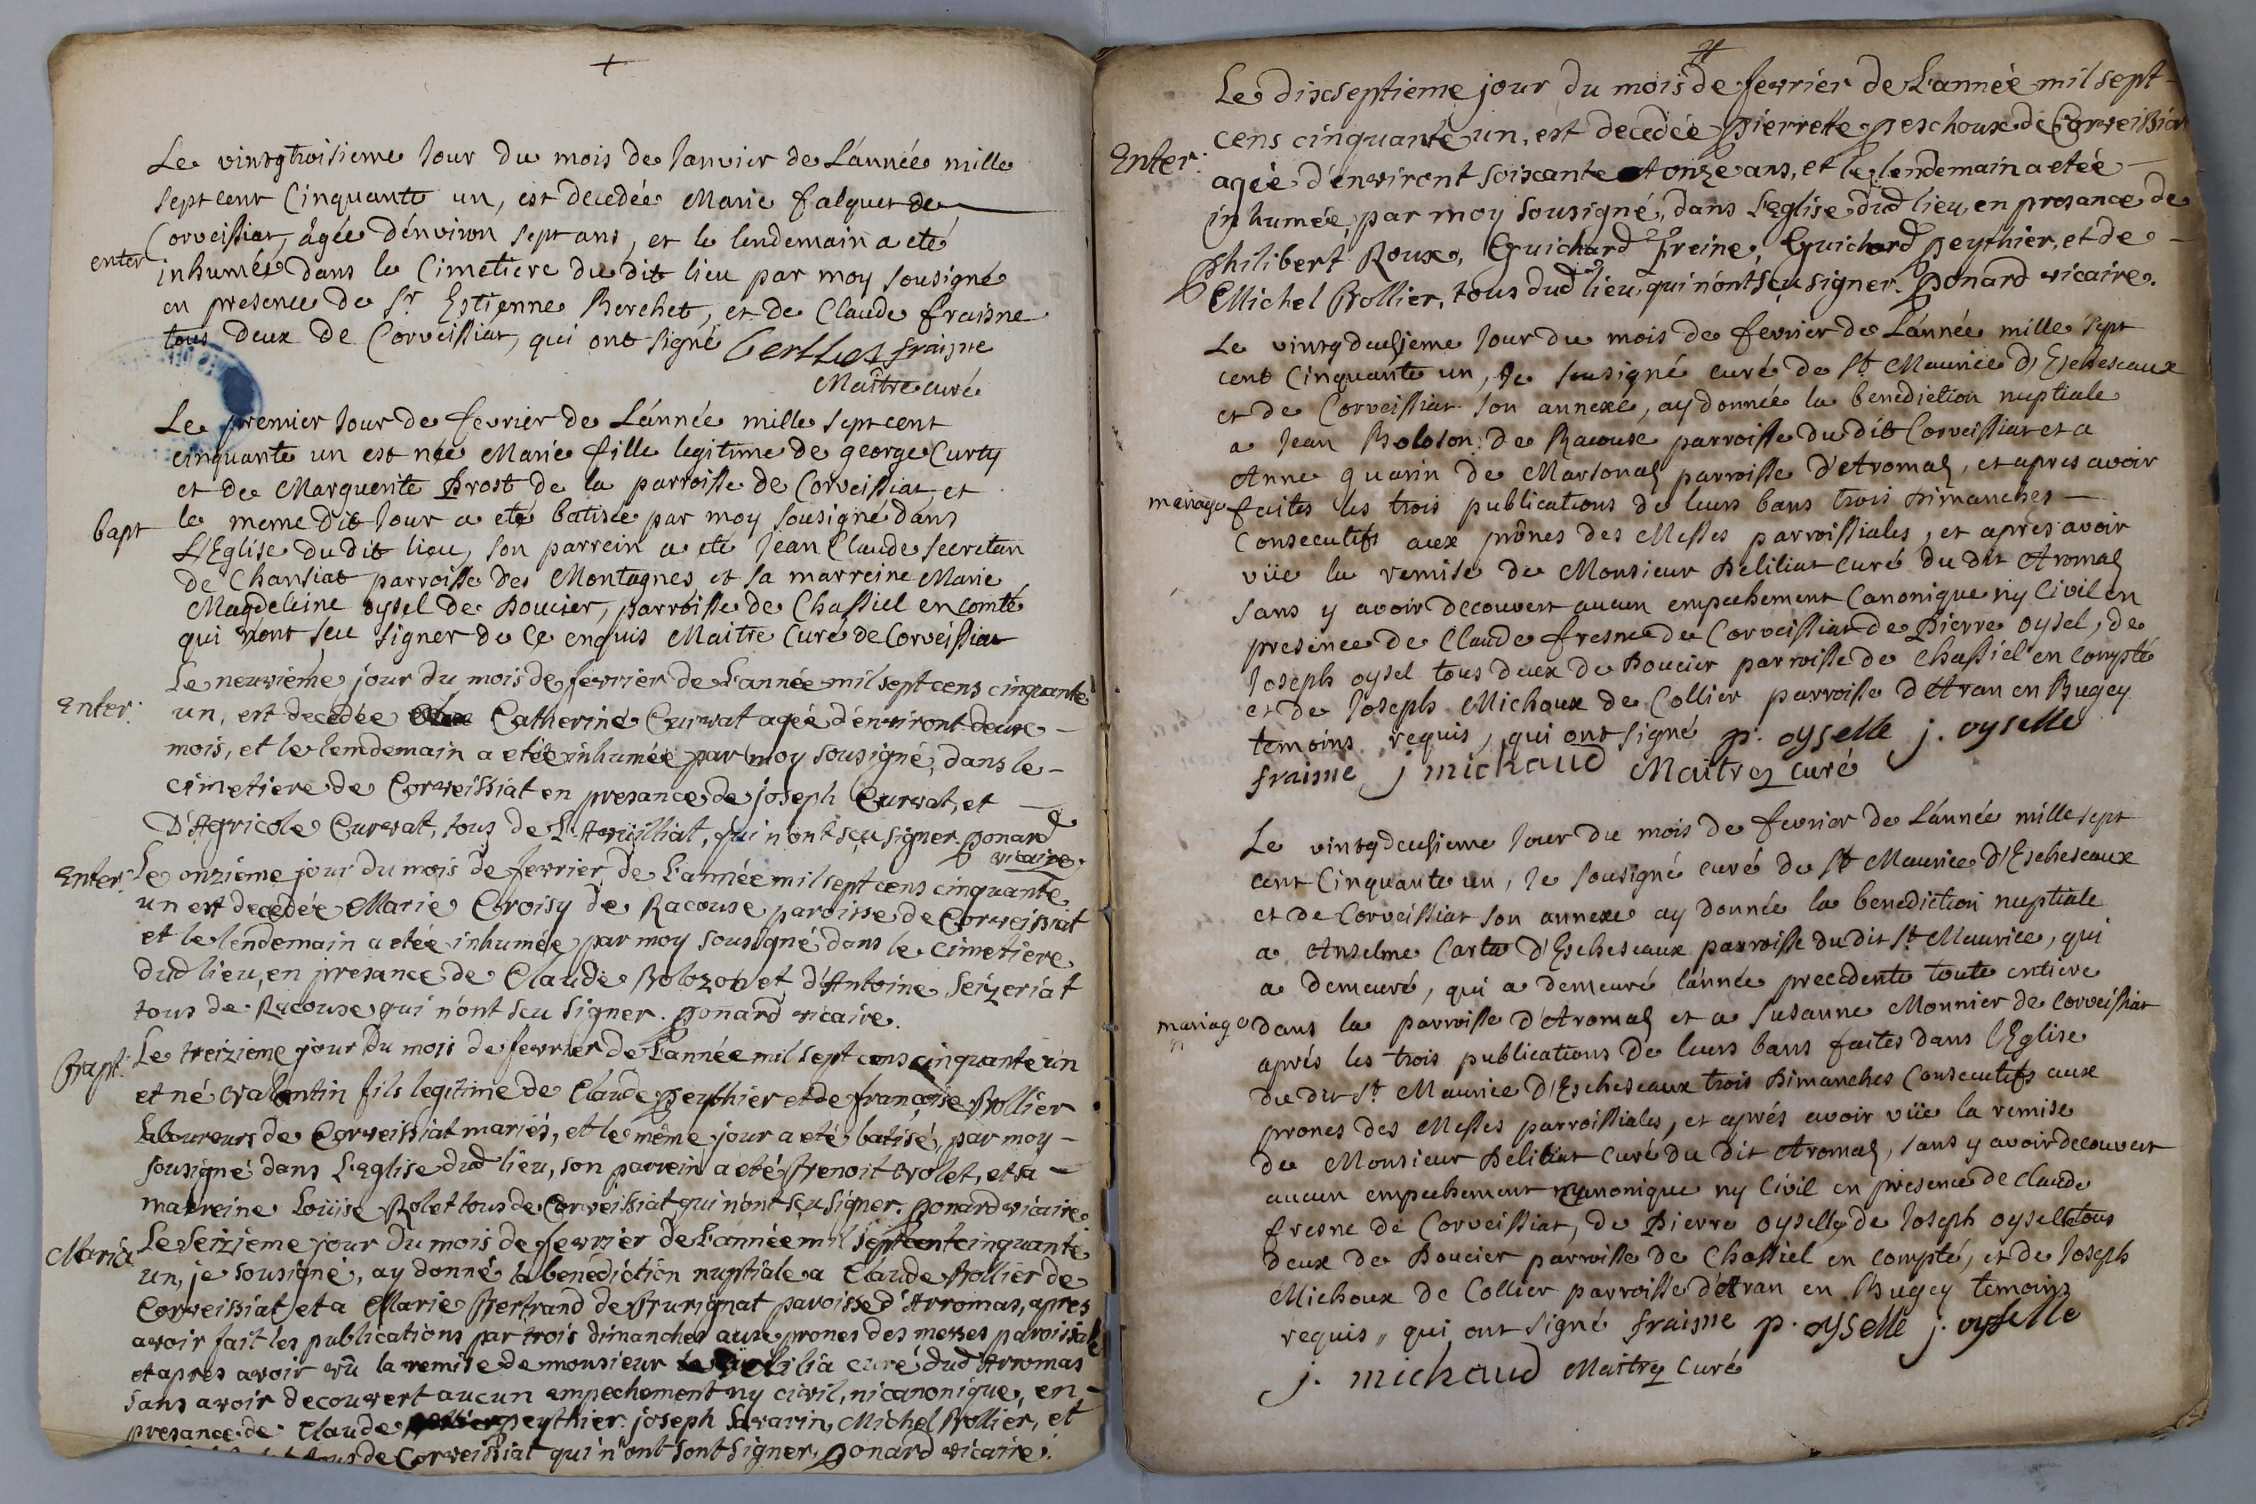 Le vintgtroisieme Jour du mois de Janvier de L'année mille
sept cent Cinquante un, est decedée Marie falquet de
Corveissiat, âgée d'environ sept ans, et le lendemain a eté
enter
inhumée dans le Cimetiere du dit lieu par moy sousigné
en presence de Sr Estienne Berchet, et de Claude fraisne
tous deux de Corveissiat, qui ont signé Berthet fraisne
Maitre curé
Le premier Jour de fevrier de L'année mille sept cent
cinquante un est née Marie fille legitime de george Curty
et de Marguerite Prost de la parroisse de Corveissiat, et
bapt
le meme dit Jour a eté batisée par moy sousigné dans
L'Eglise du dit lieu, son parrein a eté Jean Claude Secretan
de Chansiat parroisse des Montagnes et sa marreine Marie
Magdeleine oysel de Boucier, parroisse de Chassiel en comté
qui n'ont seu signer de ce enquis Maitre Curé de Corveissiat
Enter:
Le neuvième jour du mois de fevrier de L'année mil sept cens cinquante
un, est decedée Catherine Curvat agée d'environt deux
mois, et le lendemain a etée inhumée par moy sousigné, dans le
cimetiere de Corveissiat en presance de joseph Curvat, et
D'Agricole Curvat, tous de L'Avüilliat, qui n'ont sçu signer. ponard
vicaire.
Enter:
Le onzième jour du mois de fevrier de L'année mil sept cens cinquante
un est decedée Marie Croisy de Racouse paroisse de Corveissiat
et le lendemain a etée inhumée par moy sousigné dans le cimetiere
dud lieu, en presance de Claude Bolozon et d'Antoine Seizeriat
tous de Racouse qui n'ont seu signer. ponard vicaire.
Bapt:
Le treizième jour du mois de fevrier de L'année mil sept cens cinquante un
et né valentin fils legitime de Claude peythier et de françoise Bollier
laboureurs de Corveissiat mariés, et le même jour a eté batisé, par moy
sousigné dans L'Eglise dud lieu, son parrein a eté Benoit Bolet, et sa
marreine Loüise Bolet tous de Corveissiat qui n'ont sçu signer. ponard vicaire.
Maria
Le Seizième jour du mois de fevrier de L'année mil sept cent cinquante
un, je sousigné, ay donné la benediction nuptiale a Claude Bollier de
Corveissiat et a Marie Bertrand de Brurignat paroisse d'Arromas, apres
avoir fait les publications par trois dimanches aux prones des messes paroissiale
et apres avoir vû la remise de monsieur Delilia curé dud Arromas
sans avoir decouvert aucun empechement ny civil, ni canonique, en
presance de Claude peythier joseph Savarin, Michel Bollier, et
tous de Corveissiat qui n'ont sont signer. ponard vicaire.
Le dixseptieme jour du mois de fevrier de L'année mil sept
cens cinquante un, est decedée pierrette peschoux de Corveissiat
Enter:
agée d'environt soixante et onze ans, et le lendemain a etée
inhumée, par moy sousigné, dans L'Eglise dud lieu, en presance de
philibert Roux, Guichard Freine, Guichard peythier, et de
Michel Bollier, tous dud lieu, qui n'ont sçu signer. ponard vicaire.
Le vintgdeuxjeme Jour du mois de fevrier de L'année mille sept
cent Cinquante un, Je sousigné curé de St Maurice d'Escheseaux
et de Corveissiat son annexe, ay donnée la benediction nuptiale
a Jean Boloson de Racouse parroisse du dit Corveissiat et a
Anne guarin de Marsonas parroisse d'Aromas, et apres avoir
mariage
faites les trois publications de leurs bans trois Dimanches
Consecutifs aux prônes des Messes parroissiales, et apres avoir
vüe la remise de Monsieur Deliliat curé du dit Aromas
sans y avoir decouvert aucun empechement Canonique ny Civil en
presence de Claude fresne de Corveissiat de Pierre oysel, de
Joseph oysel tous deux de Boucier parroisse de Chassiel en Compté
et de Joseph Michoux de Collier parroisse d'Aran en Bugey
temoins requis, qui ont signé p. oyselle j. oyselle
fraisne j michaud Maitre Curé
Le vintgdeuxieme Jour du mois de fevrier de L'année mille sept
cent Cinquante un, Je sousigné curé de St Maurice d'Escheseaux
et de Corveissiat son annexe ay donnée la benediction nuptiale
a Anselme Carla d'Escheseaux parroisse du dit St Maurice, qui
a demeuré, qui a demeuré l'année precedente toute entiere
mariage
dans la parroisse d'Aromas et a Susanne Monnier de Corveissiat
aprés les trois publications de leurs bans faites dans l'Eglise
du dit St Maurice d'Escheseaux trois Dimanches Consecutifs aux
prones des Messes parroissiales, et aprés avoir vüe la remise
de Monsieur Deliliat Curé du dit Aromas, sans y avoir decouvert
aucun empechement canonique ny Civil en presence de claude
fresne de Corveissiat, de Pierre oyselle, de Joseph oyselle tous
deux de Boucier parroisse de Chassiel en Compté, et de Joseph
Michoux de Collier parroisse d'Aran en Bugey temoins
requis, qui ont signé fraisne p. oyselle j. oyselle
j. michaud Maitre Curé